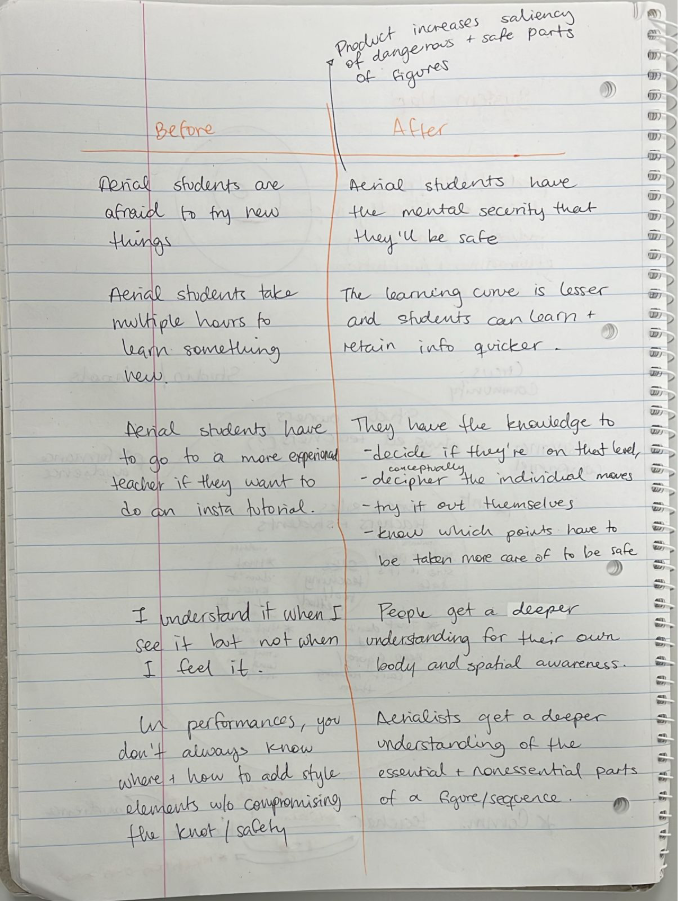 Product increases saliency
of dangerous + safe parts
of figures
Before
After
Aerial students are
afraid to try new
things
Aerial students have
the mental security that
they'll be safe
Aerial students take
multiple hours to
learn something
new.
The learning curve is lesser
and students can learn +
retain info quicker.
Aerial students have
to go to a more experienced
teacher if they want to
do an insta tutorial.
They have the knowledge to
-decide if they're on that level,
conceptually
-decipher the individual moves
-try it out themselves
-know which points have to
be taken more care of to be safe
I understand it when I
see it but not when
I feel it.
People get a deeper
understanding for their own
body and spatial awareness.
In performances, you
don't always know
where + how to add style
elements w/o compromising
the knot/safety
Aerialists get a deeper
understanding of the
essential + nonessential parts
of a figure/sequence.